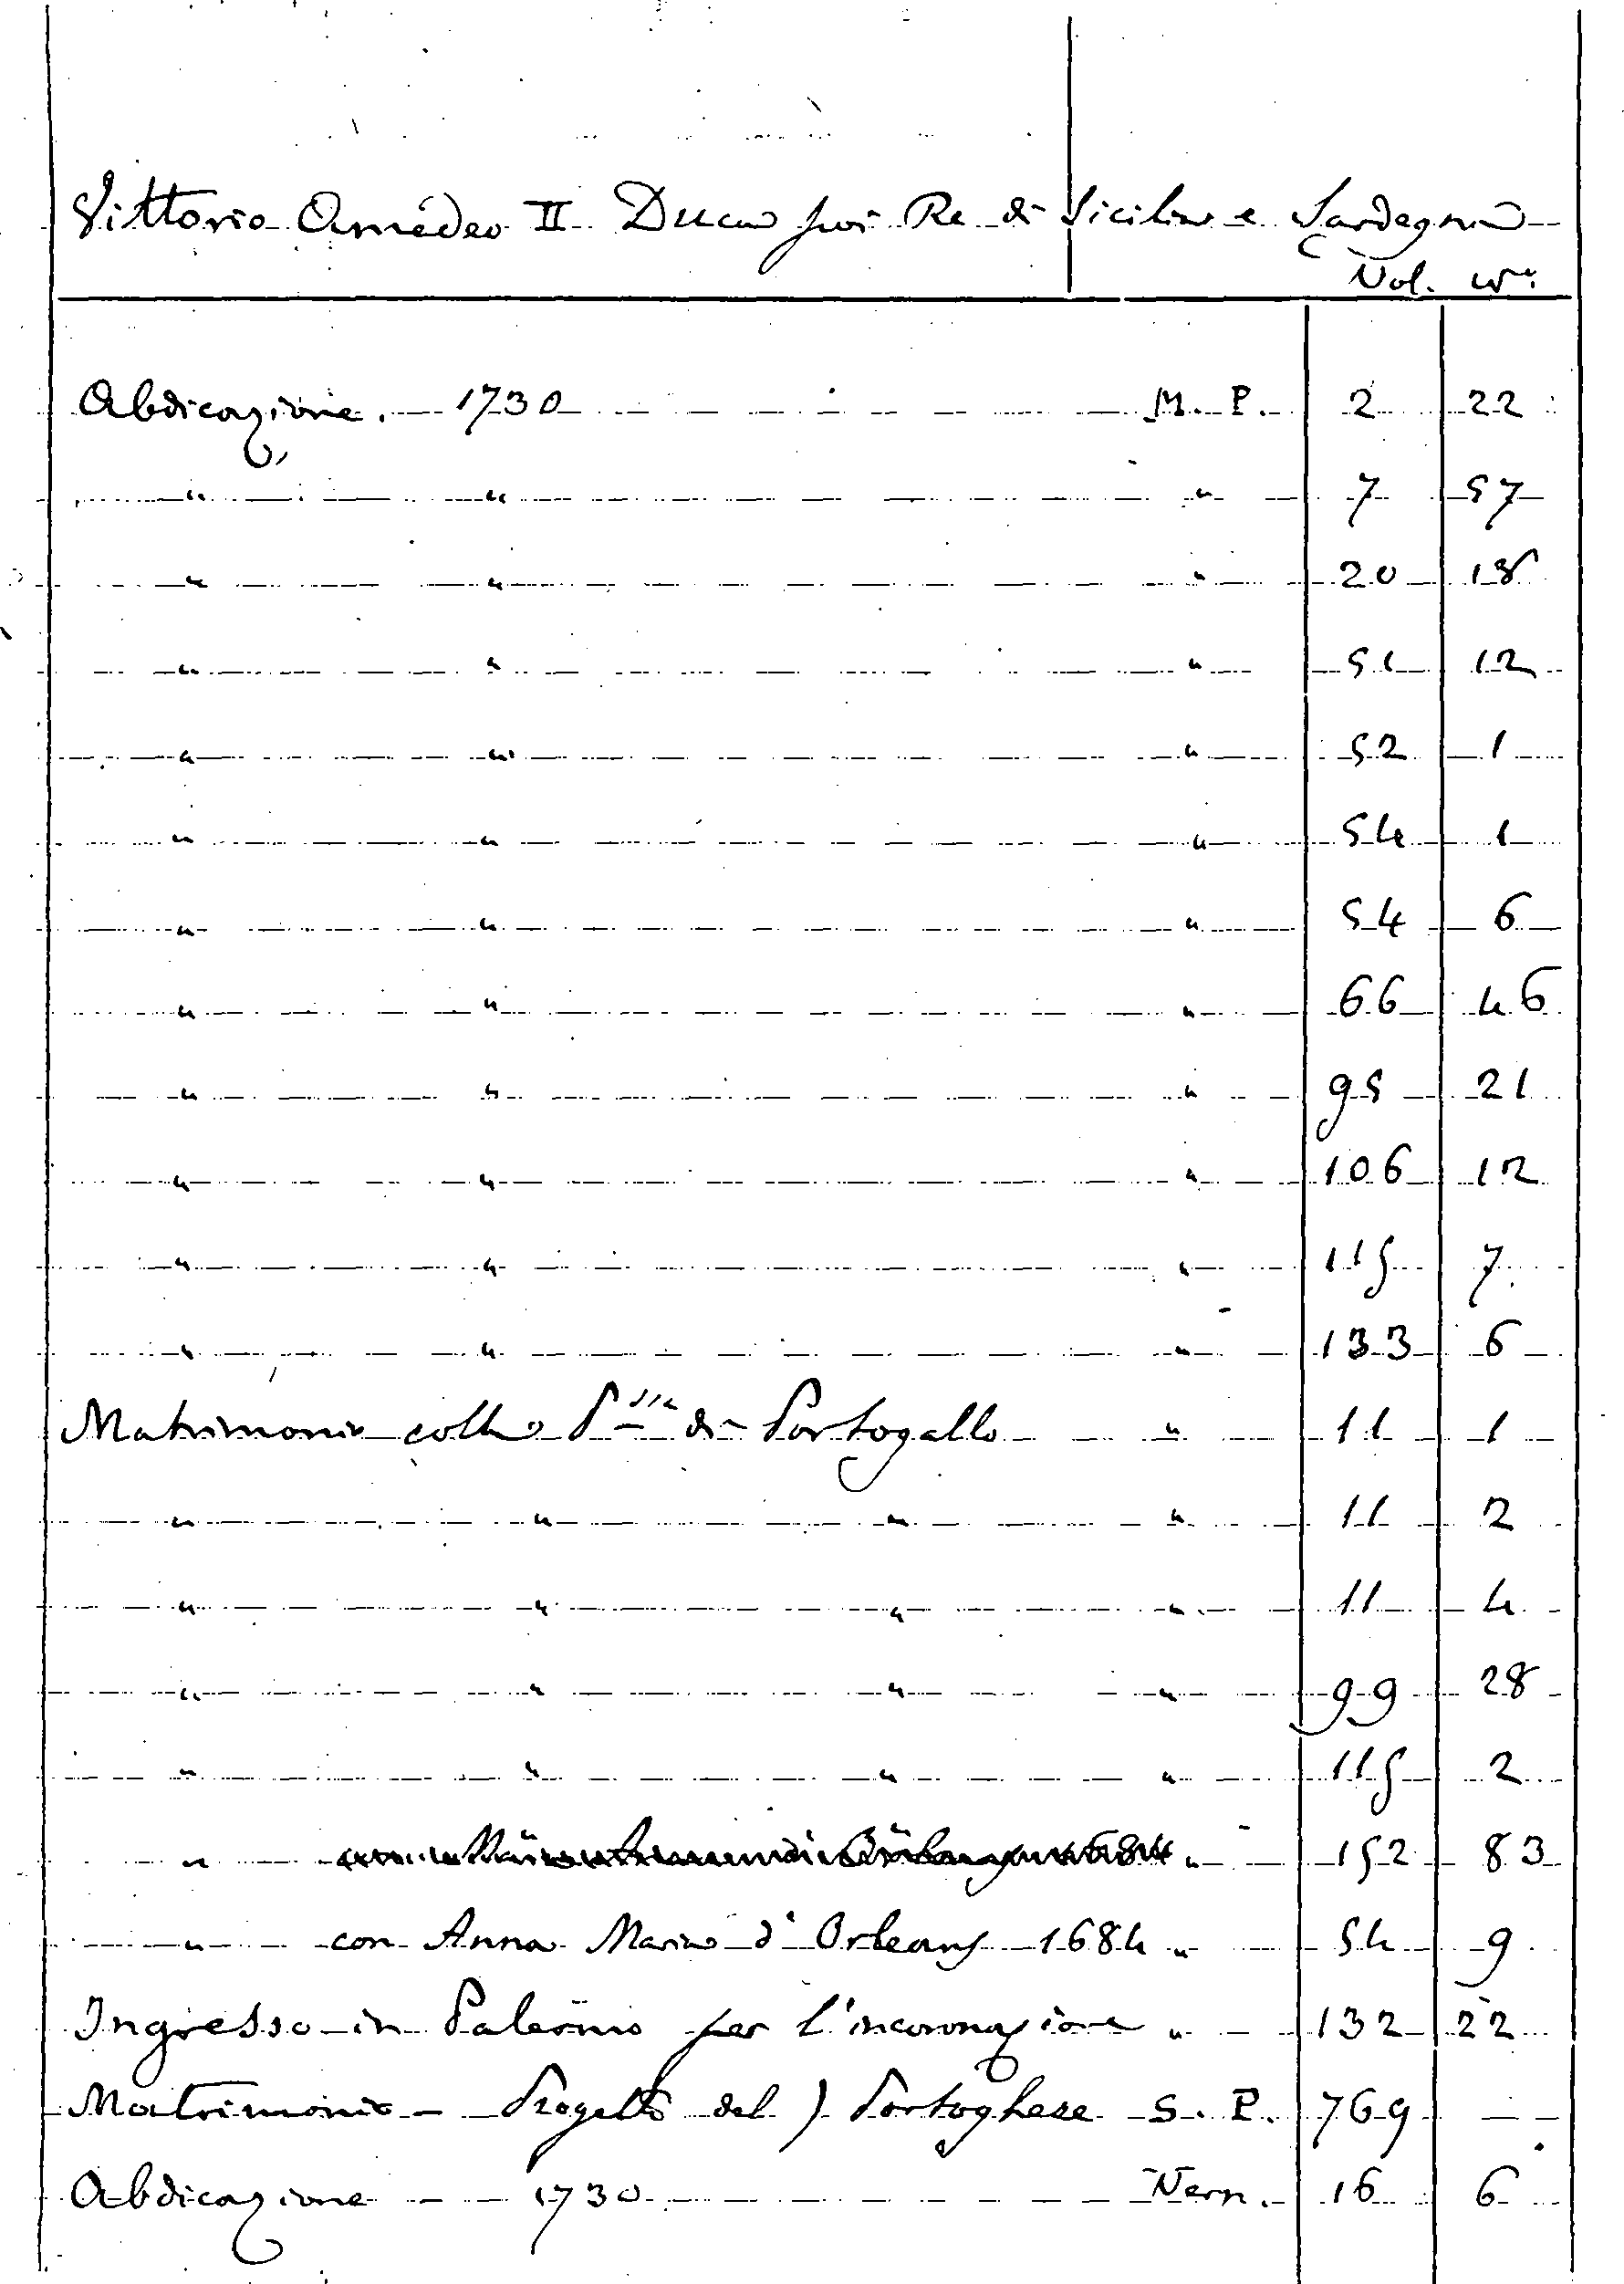 Vittorio Amedeo II Duca poi Re di Sicilia e Sardegna
Vol. No.
Abdicazione. 1730 M. P. 2 22
" " " 7 57
" " " 20 18
" " " 51 12
" " " 52 1
" " " 54 1
" " " 54 6
" " " 66 46
" " " 95 21
" " " 106 12
" " " 115 7
" " " 133 6
Matrimonio colla P.ssa di Portogallo " 11 1
" " " " 11 2
" " " " 11 4
" " " " 99 28
" " " " 115 2
" " 152 83
" con Anna Maria d'Orleans 1684 " 54 9
Ingresso in Palermo per l'incoronazione " 132 22
Matrimonio - Progetto del ) Portoghese S. P. 769 —
Abdicazione 1730 Vern. 16 6